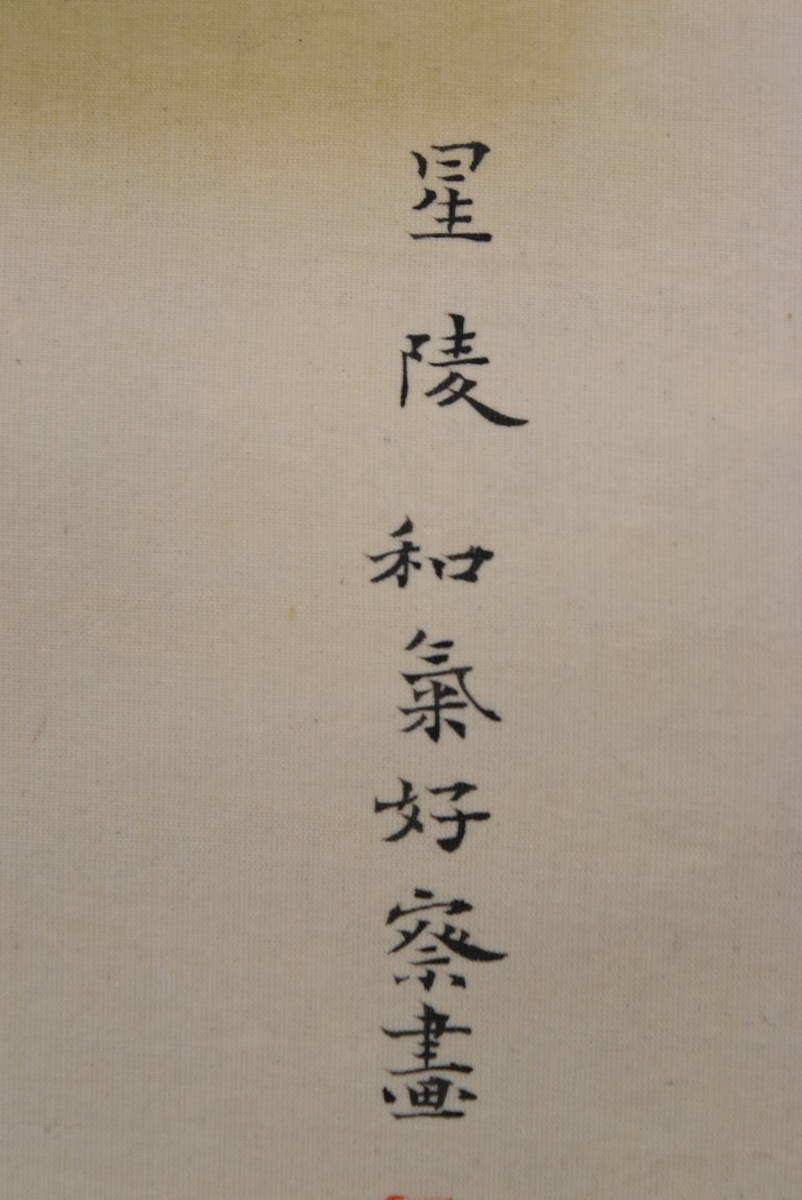 星陵和氣好察畫